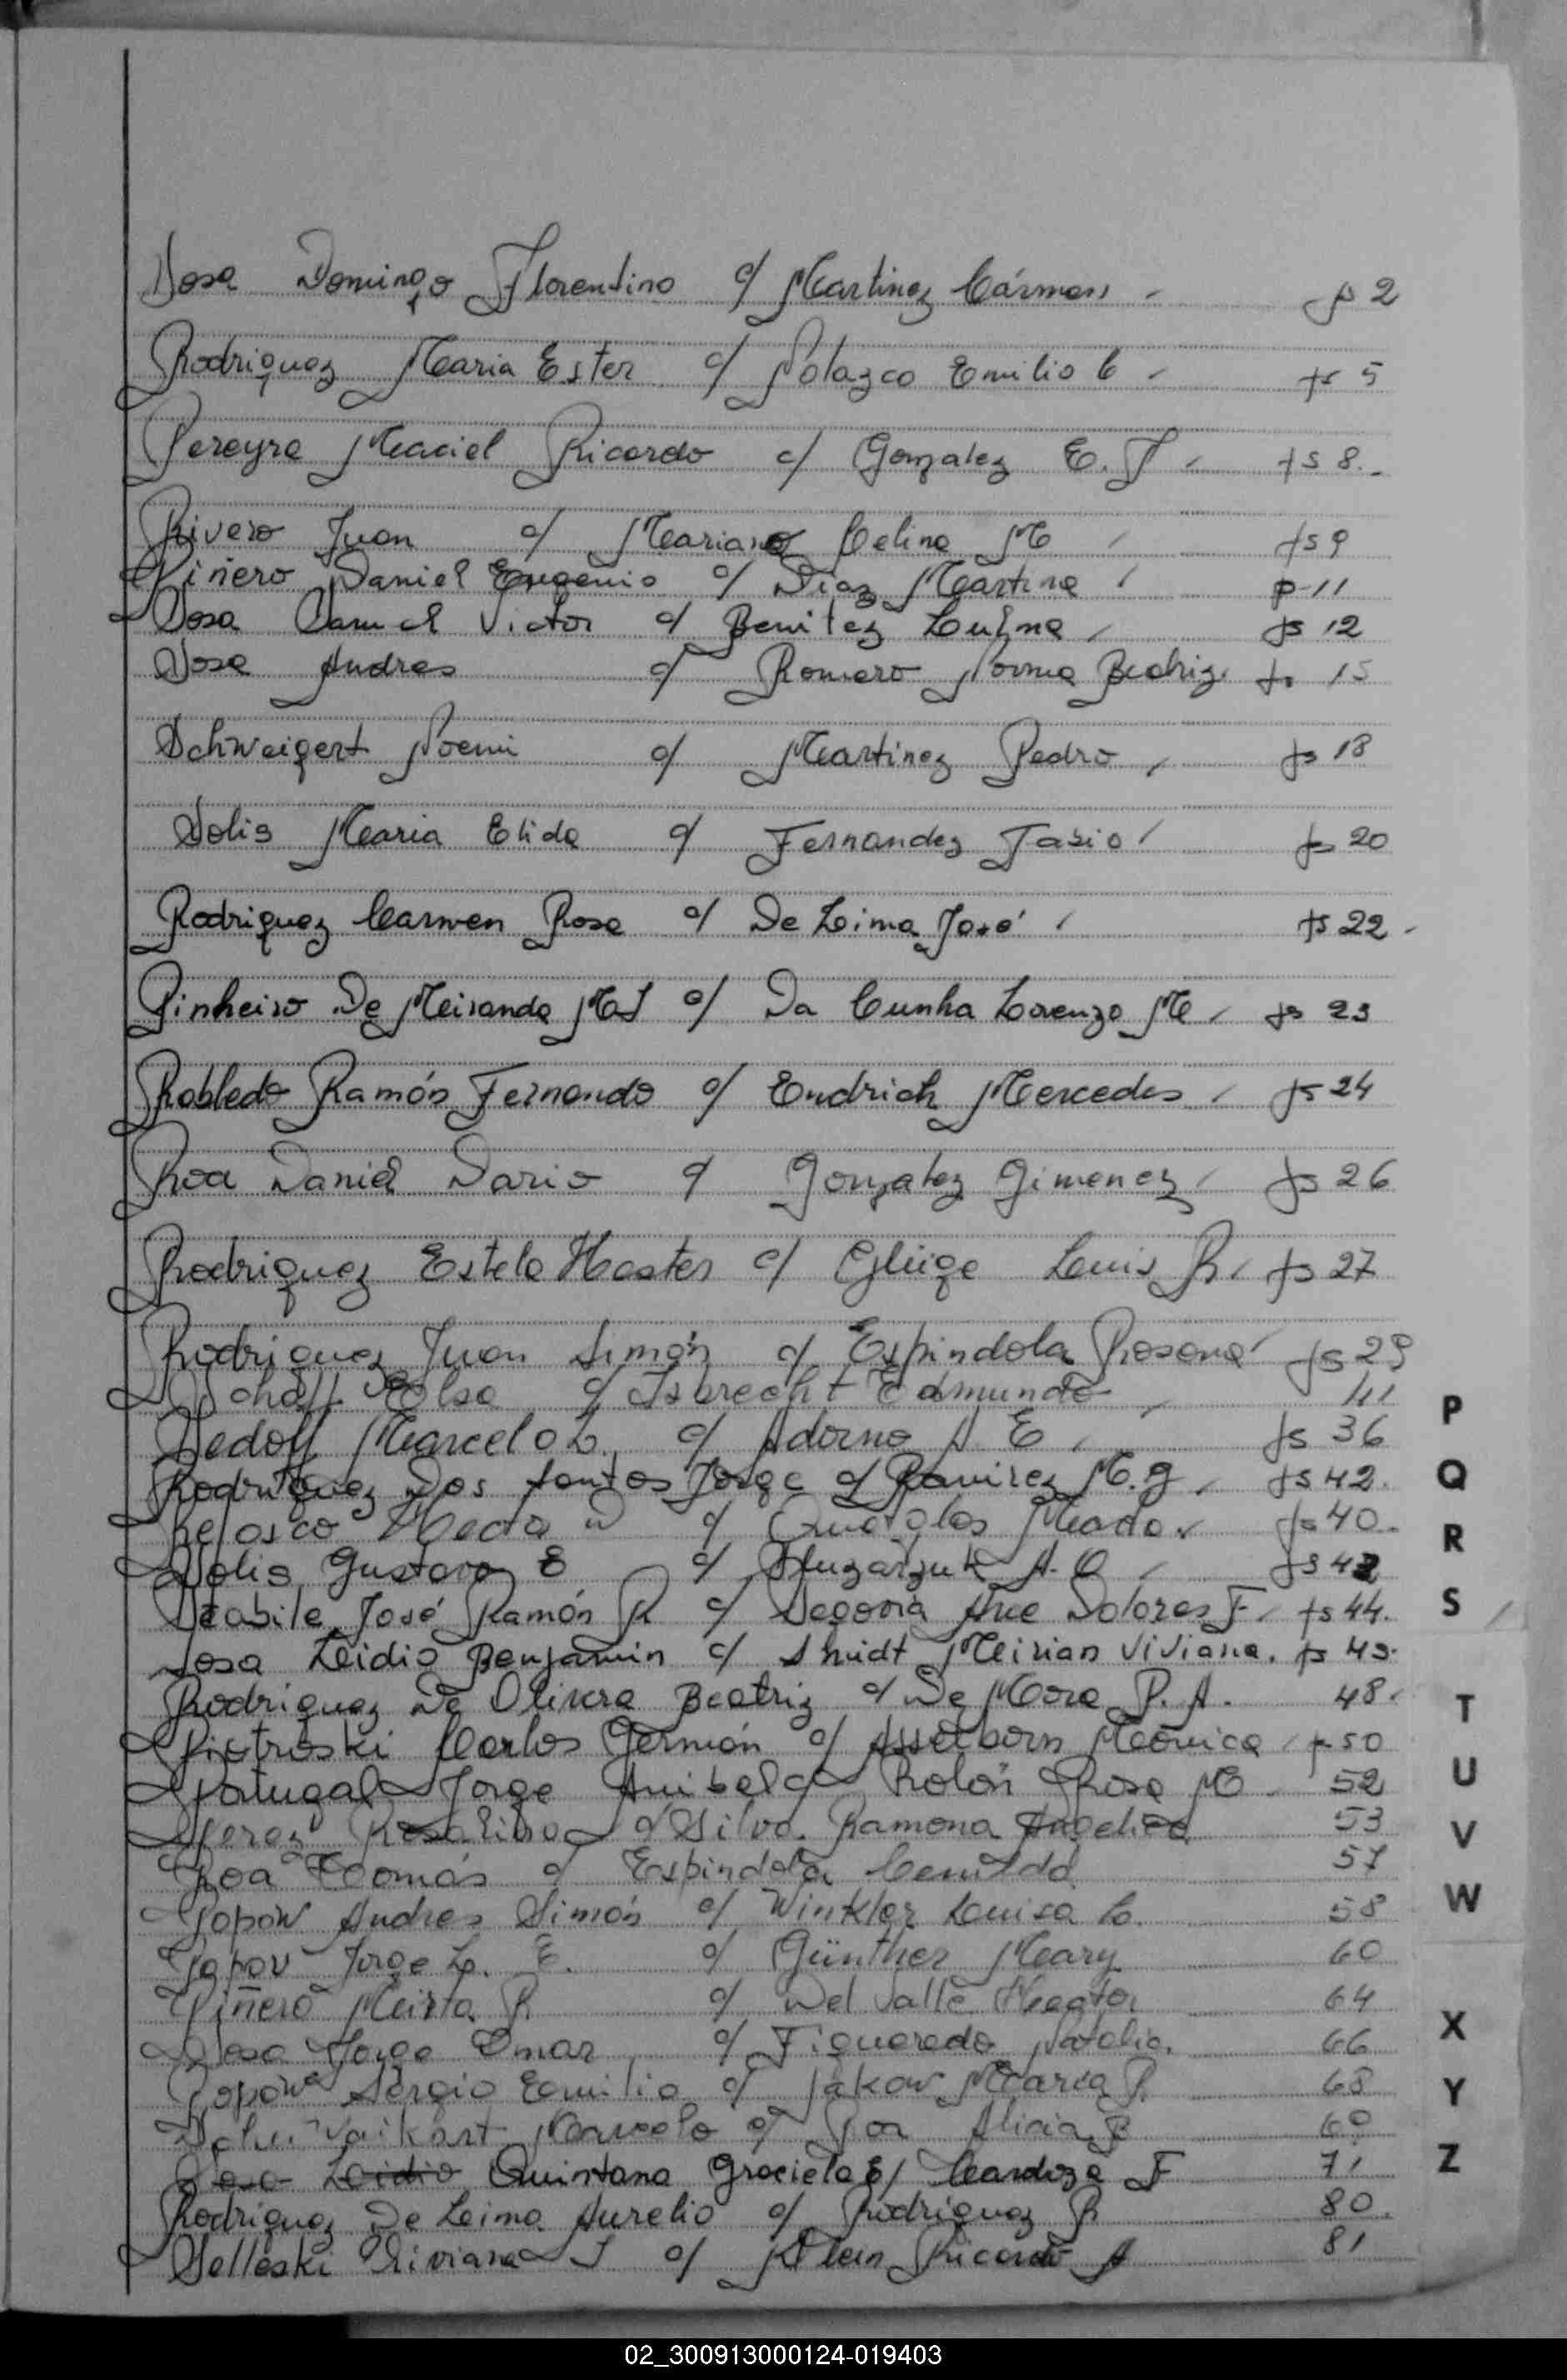 Sosa Domingo Florentino c/ Martinez Cármen fs 2
Rodriguez Maria Ester c/ Nolazco Emilio C fs 5
Pereyra Maciel Ricardo c/ Gonzalez E. F fs 8.-
Rivero Juan c/ Mariano Celina M fs 9
Piñero Daniel Eugenio c/ Diaz Martina fs 11
Sosa Samuel Victor c/ Benitez fs 12
Sosa Andres c/ Romero Norma Beatriz fs 15
Schweigert Noemi c/ Martinez Pedro fs 18
Solis Maria Elida c/ Fernandez Fabio fs 20
Rodriguez Carmen Rosa c/ De Lima José fs 22
Pinheiro De Miranda c/ Da Cunha Lorenzo M fs 23
Robledo Ramón Fernando c/ Endrich Mercedes fs 24
Roa Daniel Dario c/ Gonzalez Gimenez fs 26
Rodriguez Estela c/ Glüge Luis R. fs 27
Rodriguez Juan Simón c/ Espindola Rosana fs 29
Elsa c/ Isbrecht Edmundo
Sedoff Marcelo L. c/ Adorno A E fs 36
Rodriguez Dos Santos Jorge c/ Ramirez M. g. fs 42.
c/ fs 40.
Solis Gustavo E c/ A. O fs 42
Stabile José Ramón R c/ Segovia Dolores F. fs 44.
Sosa Leidio Benjamin c/ Shmidt Mirian Viviana. fs
Rodriguez De Olivera Beatriz c/ De Mora P. A. 48
Piotroski Carlos Germón c/ Asselborn Mónica 50
Portugal Jorge Anibal c/ Rolón Rosa M 52
Perez c/ Silva Ramona Angelica 53
Roa Tomás c/ Espindola 57
Popow Andres Simón c/ Winkler Luisa C. 58
Popov Jorge L. E. c/ Günther Mary 60
Piñero Mirta R c/ Del Valle Hector 64
Sosa Jorge Omar c/ Figueredo Natalia. 66
Popow Sergio Emilio c/ Jakow Maria R. 68
Marcelo c/ Roa Alicia B 69
Sosa Leidio Quintana Graciela E/ Cardoza F 71
Rodriguez De Lima Aurelio c/ Rodriguez R 80.
Selleski Viviana I c/ Klein Ricardo A 81
P
Q
R
S
T
U
V
W
X
Y
Z
02_300913000124-019403